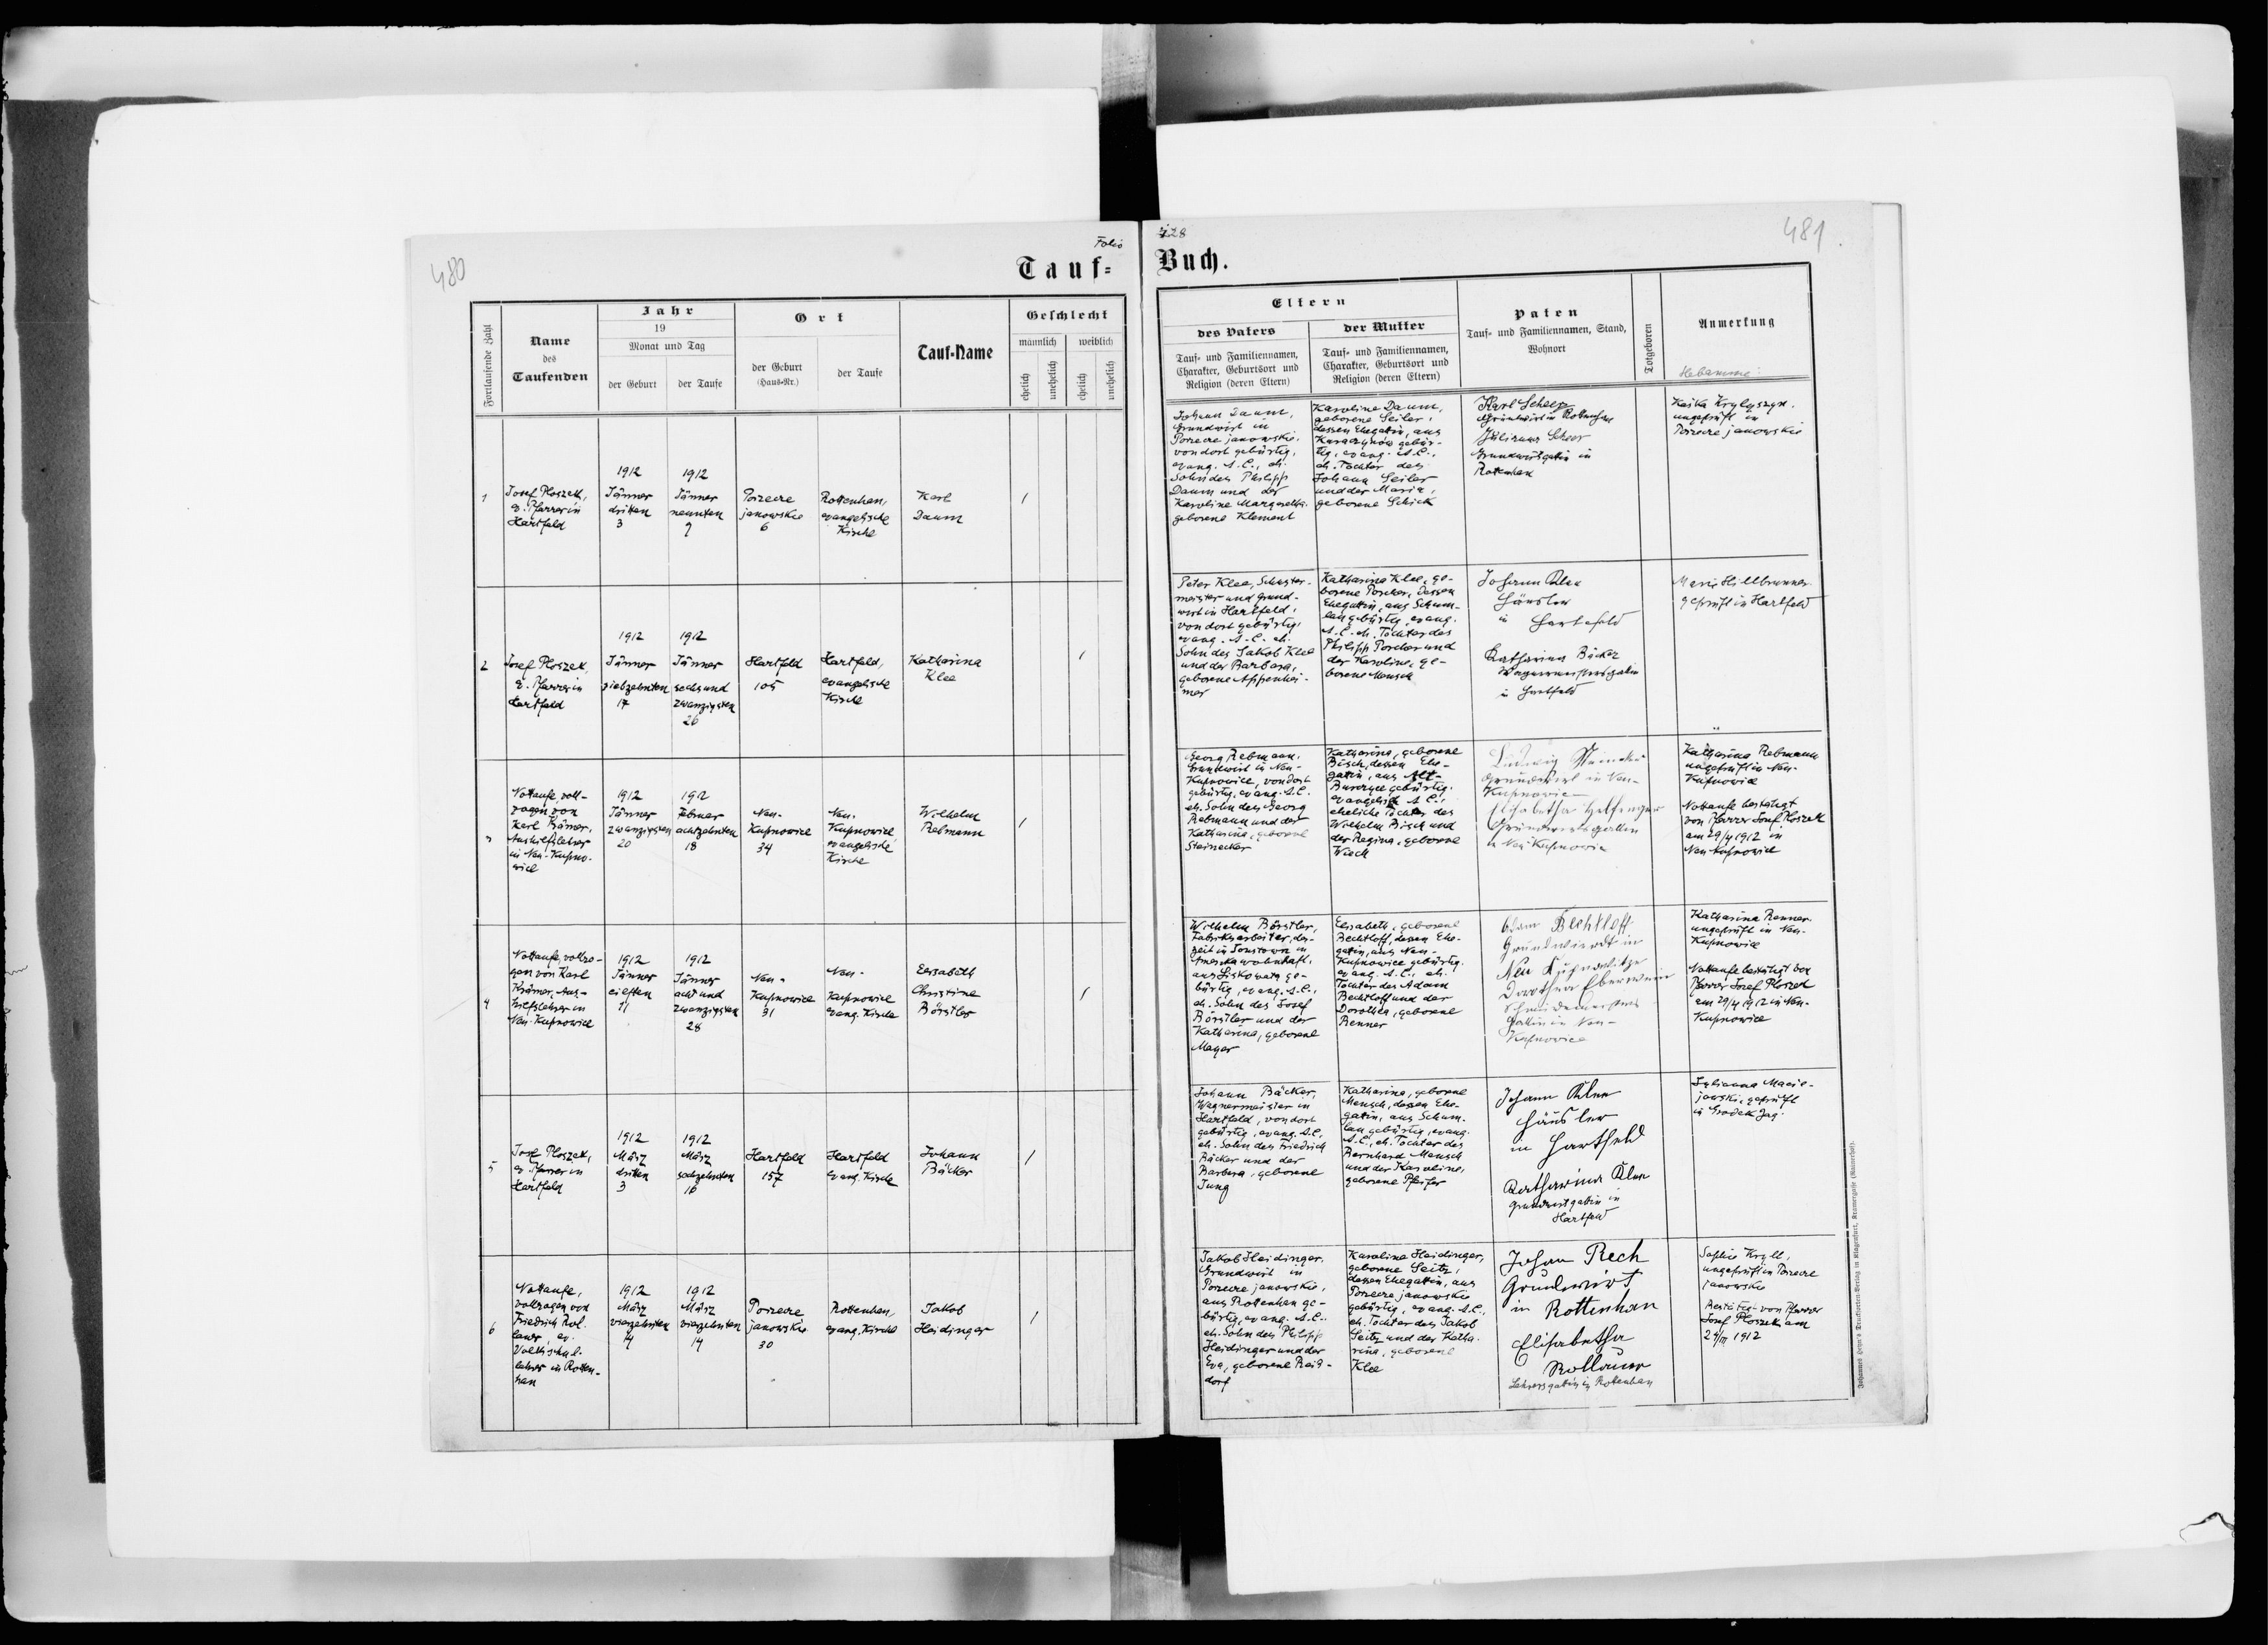 480
Folio
Tauf=
Fortlaufende Zahl
Name
des
Taufenden
Jahr
19
Monat und Tag
der Geburt
der Taufe
Ort
der Geburt
(Haus-Nr.)
der Taufe
Tauf-Name
Geschlecht
männlich
weiblich
ehelich
unehelich
ehelich
unehelich
1
Josef Ploszek,
ev. Pfarrer in
Hartfeld
1912
Jänner
dritten
3
1912
Jänner
neunten
9
Porzecze
janowskie
6
Rottenhan,
evangelische
Kirche
Karl
Daum
1
2
Josef Ploszek,
ev. Pfarrer in
Hartfeld
1912
Jänner
siebzehnten
17
1912
Jänner
sechsund
zwanzigsten
26
Hartfeld
105
Hartfeld,
evangelische
Kirche
Katharina
Klee
1
3
Nottaufe, voll-
zogen von
Karl Krämer,
Aushilfslehrer
in Neu-Kupno-
wice
1912
Jänner
zwanzigsten
20
1912
Februar
achtzehnten
18
Neu-
Kupnowice
34
Neu-
Kupnowice
evangelische
Kirche
Wilhelm
Rebmann
1
4
Nottaufe, vollzo-
gen von Karl
Krämer, Aus-
hilfslehrer in
Neu-Kupnowice
1912
Jänner
eilften
11
1912
Jänner
acht und
zwanzigsten
28
Neu-
Kupnowice
31
Neu-
Kupnowice
evang. Kirche
Elisabeth
Christine
Börstler
1
5
Josef Ploszek,
ev. Pfarrer in
Hartfeld
1912
März
dritten
3
1912
März
sechzehnten
16
Hartfeld
157
Hartfeld
evang. Kirche
Johann
Bäcker
1
6
Nottaufe,
vollzogen von
Friedrich Rol-
lauer, ev.
Volksschul-
lehrer in Rotten-
han
1912
März
vierzehnten
14
1912
März
vierzehnten
14
Porzecze
janowskie
30
Rottenhan,
evang. Kirche
Jakob
Heidinger
1
128
481.
Buch.
Eltern
des Vaters
Tauf- und Familiennamen,
Charakter, Geburtsort und
Religion (deren Eltern)
der Mutter
Tauf- und Familiennamen,
Charakter, Geburtsort und
Religion (deren Eltern)
Paten
Tauf- und Familiennamen, Stand,
Wohnort
Totgeboren
Anmerkung
Hebamme:
Johann Daum,
Grundwirt in
Porzecze janowskie,
von dort gebürtig,
evang. A.C., eh.
Sohn des Philipp
Daum und der
Karoline Margaretha
geborene Klement
Karoline Daum,
geborene Seiler,
dessen Ehegattin, aus
Karaczynów gebür-
tig, evang. A.C.,
eh. Tochter des
Johann Seiler
und der Maria,
geborene Schick
Karl Scheer
Grundwirt in Rottenhan
Juliana Scheer
Grundwirtsgattin in
Rottenhan
ungeprüft in
Porzecze janowskie
Peter Klee, Schuster-
meister und Grund-
wirt in Hartfeld,
von dort gebürtig,
evang. A.C. eh.
Sohn des Jakob Klee
und der Barbara,
geborene Appenhei-
mer
Katharina Klee, ge-
borene Porcher, dessen
Ehegattin, aus Schum-
lau gebürtig, evang.
A.C. eh. Tochter des
Philipp Porcher und
der Karoline, ge-
borene Mensch
Johann Klee
Häusler
in Hartfeld
Katharina Bäcker
Wagnermeistersgattin
in Hartfeld
Marie Hillbrunner
geprüft in Hartfeld
Georg Rebmann,
Grundwirt in Neu-
Kupnowice, von dort
gebürtig, evang. A.C.
eh. Sohn des Georg
Rebmann und der
Katharina, geborene
Steinecker
Katharina, geborene
Bisch, dessen Ehe-
gattin, aus Alt-
gebürtig,
evangelisch A.C.,
eheliche Tochter des
Wilhelm Bisch und
der Regina, geborene
Ludwig
Grundwirt in Neu-
Kupnowice
Elisabetha
Grundwirtsgattin
in Neu-Kupnowice
Katharina Rebmann
ungeprüft in Neu-
Kupnowice
Nottaufe bestätigt
von Pfarrer Josef Ploszek
am 29/4 1912 in
Neu-Kupnowice
Wilhelm Börstler,
Fabriksarbeiter, der-
zeit in in
Amerika wohnhaft,
aus Liskowata ge-
bürtig, evang. A.C.,
eh. Sohn des Josef
Börstler und der
Katharina, geborene
Mayer
Elisabeth, geborene
Bechtloff, dessen Ehe-
gattin, aus Neu-
Kupnowice gebürtig,
evang. A.C., eh.
Tochter des Adam
Bechtloff und der
Dorothea, geborene
Renner
Adam Bechtloff
in
Neu
Dorothea Eberwein
Gattin in Neu-
Kupnowice
Katharina Renner
ungeprüft in Neu-
Kupnowice
Nottaufe bestätigt von
Pfarrer Josef Ploszek
am 29/4 1912 in Neu-
Kupnowice
Johann Bäcker,
Wagnermeister in
Hartfeld, von dort
gebürtig, evang. A.C.,
eh. Sohn des Friedrich
Bäcker und der
Barbara, geborene
Jung
Katharina, geborene
Mensch, dessen Ehe-
gattin, aus Schum-
lau gebürtig, evang.
A.C., eh. Tochter des
Bernhard Mensch
und der Karoline,
geborene Pfeifer
Johann Klee
Häusler
in Hartfeld
Katharina Klee
Grundwirtsgattin in
Hartfeld
Julianna Macie-
jowski, geprüft
in Grodek Jag.
Jakob Heidinger,
Grundwirt in
Porzecze janowskie,
aus Rottenhan ge-
bürtig, evang. A.C.,
eh. Sohn des Philipp
Heidinger und der
Eva, geborene Reis-
dorf
Karolina Heidinger,
geborene Seitz,
dessen Ehegattin, aus
Porzecze janowskie
gebürtig, evang. A.C.,
eh. Tochter des Jakob
Seitz und der Katha-
rina, geborene
Klee
Johann Rech
Grundwirt
in Rottenhan
Elisabetha
Rollauer
Lehrersgattin in Rottenhan
Sophie Kryll,
ungeprüft in Porzecze
janowskie
Bestätigt von Pfarrer
Josef Ploszek am
24/III 1912
Johannes Heyn's Drucksorten-Verlag in Klagenfurt, Kramergasse (Rainerhof).